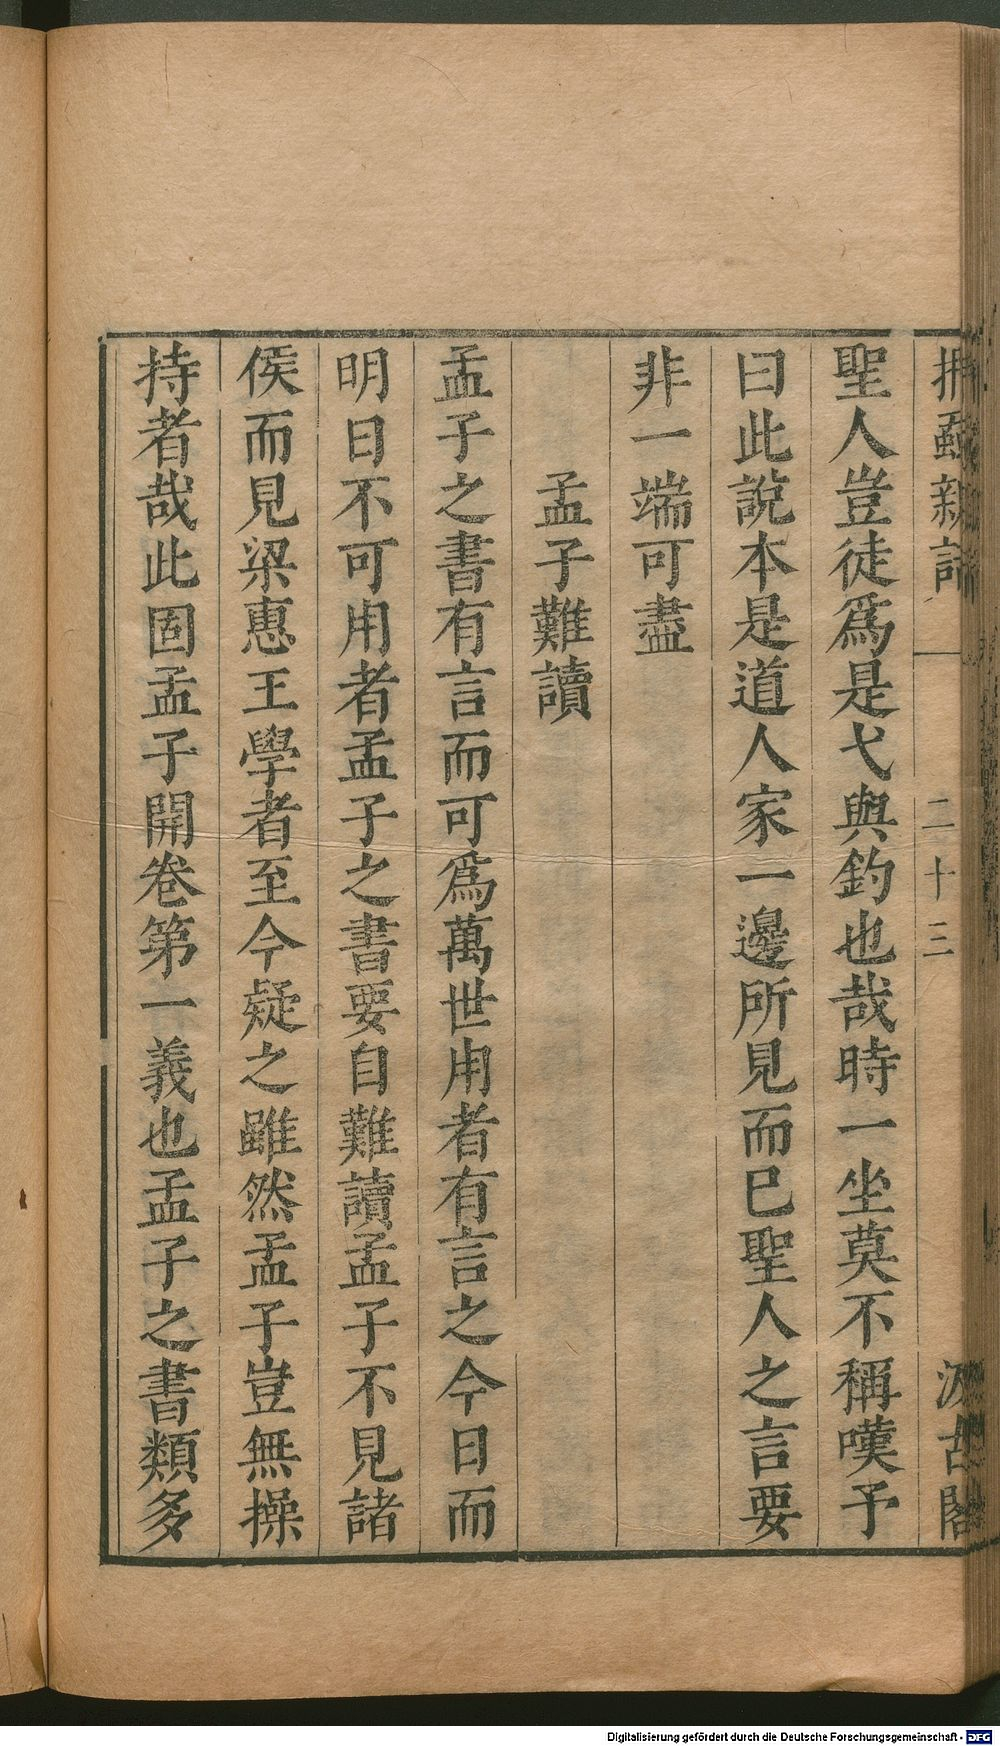 捫蝨新話
一
二十三
汲古閣
聖人豈徒爲是弋與釣也哉時一坐莫不稱嘆予
曰此說本是道人家一邊所見而巳聖人之言要
非一端可盡
孟子難讀
孟子之書有言而可爲萬世用者有言之今日而
明日不可用者孟子之書要自難讀孟子不見諸
侯而見梁惠王學者至今疑之雖然孟子豈無操
持者哉此固孟子開卷第一義也孟子之書類多
Digitalisierung gefördert durch die Deutsche Forschungsgemeinschaft - DFG